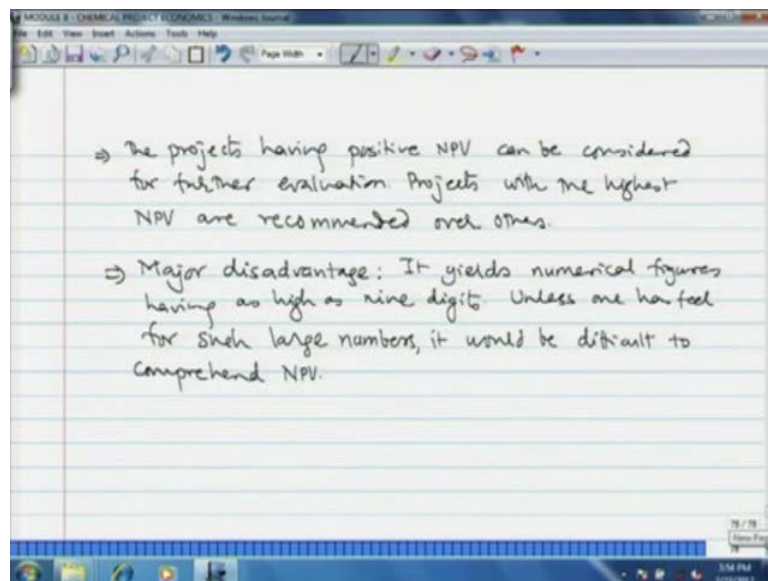 MODULE 8 - CHEMICAL PROJECT ECONOMICS - Windows Journal
File Edit View Insert Actions Tools Help
Page Width
⇒ The projects having positive NPV can be considered
for further evaluation. Projects with the highest
NPV are recommended over others.
⇒ Major disadvantage: It yields numerical figures
having as high as nine digit. Unless one has feel
for such large numbers, it would be difficult to
comprehend NPV.
78 / 78
New Pag
3:54 PM